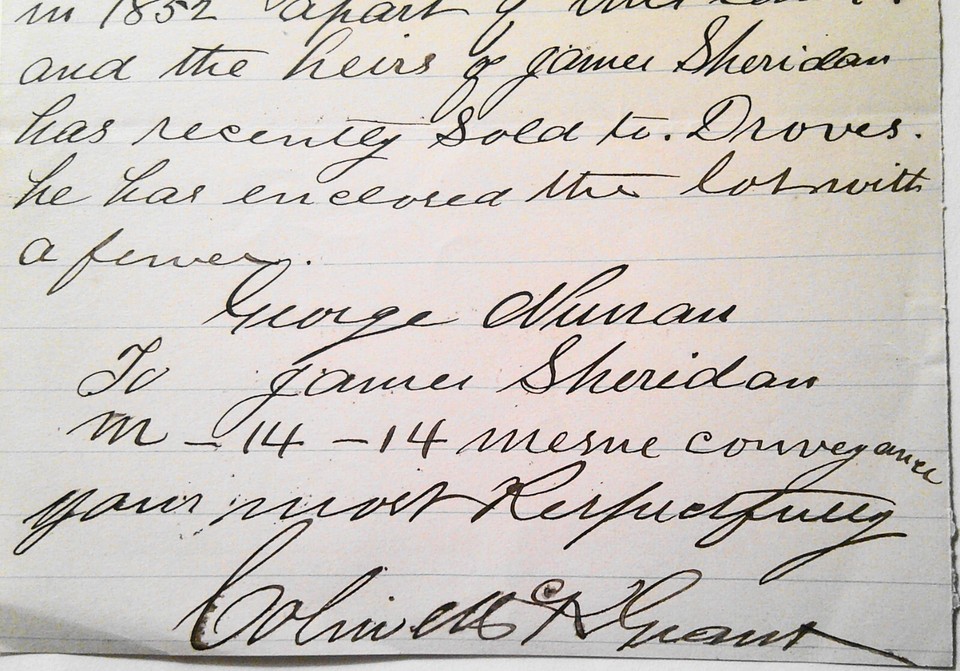 in 1852 apart of
and the heirs of James Sheridan
has recently sold to. Droves.
he has enclosed the lot with
a fence.
George
To James Sheridan
M - 14 - 14 mesne conveyance
your most Respectfully
Colin Mc K Grant